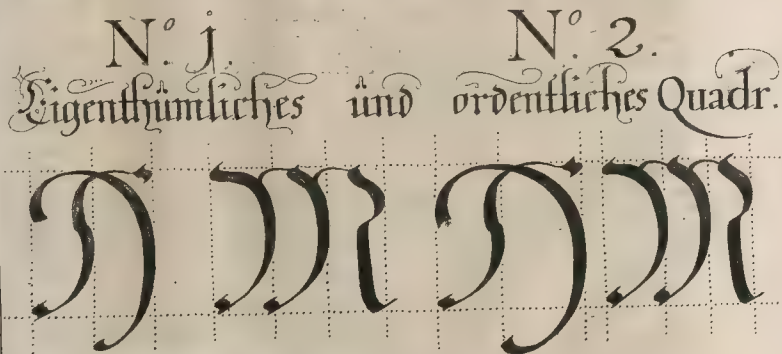 Nº. j. Nº. 2.
Eigenthümliches ünd ordentliches Quadr.